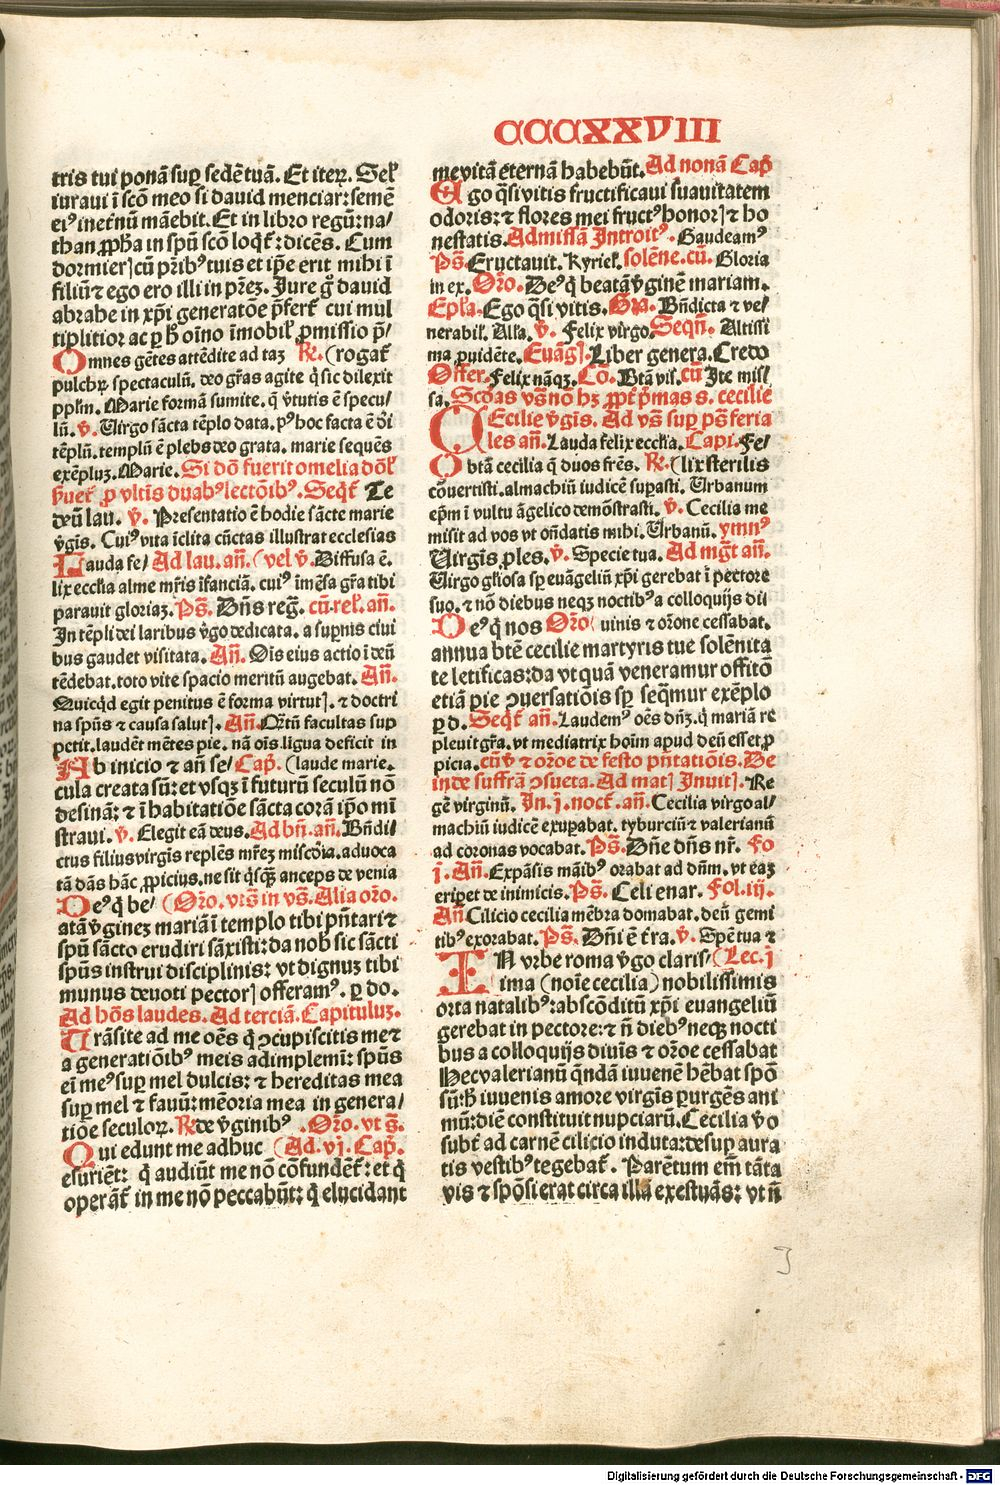 CCCXXVIII
tris tui ponā suꝑ sedē tuā. Et iteꝝ. Sel̄
iuraui ī scō meo si dauid menciar: semē
eiꝰ inet̄nū māebit. Et in libro regū: na/
than ꝓph̄a in spū scō loqt̄: dicēs. Cum
dormierꝭ cū pr̄ibꝰ tuis et ip̄e erit mihi ī
filiū ⁊ ego ero illi in pr̄eꝫ. Jure ḡ dauid
abrahe in xp̄i generatōe p̄fert̄ cui mul
tiplitior ac ꝑ h̄ oīno īmobil̄ ꝓmissio p̄/
Omnes gētes attēdite ad taꝫ R̄. (rogat̄
pulchꝝ spectaculū. deo gr̄as agite q̄ sic dilexit
pplm̄. Marie formā sumite. q̄ v̄tutis ē specu/
lū. v̄. Uirgo sācta tēplo data. pꝰ hoc facta ē d̄i
tēplū. templū ē plebs deo grata. marie sequēs
exēpluꝫ. Marie. Si dō fuerit omelia dōl̄
h̄uer̄ ꝓ vltīs duabꝰ lectōibꝰ. Seqt̄ Te
deū lau. v̄. Presentatio ē hodie sācte marie
v̄gīs. Cuiꝰ vita īclita cūctas illustrat ecclesias
Lauda fe/ Ad lau. an̄. (vel v̄. Diffusa ē.
lix eccl̄ia alme mr̄is īfanciā. cuiꝰ īmēsa gr̄a tibi
parauit gloriaꝫ. Ps̄. Dn̄s reg̅. cū.rel̄. an̄.
In tēpli dei laribus v̄go dedicata. a supnis ciui
bus gaudet visitata. An̄. Oīs eius actio ī deū
tēdebat. toto vite spacio meritū augebat. An̄.
Quicqd̄ egit penitus ē forma virtutꝭ. ⁊ doctri
na spūs ⁊ causa salutꝭ. An̄. Mētū facultas sup
petit. laudēt mētes pie. nā oīs ligua deficit in
Ab inicio ⁊ an̄ se/ Cap̄. (laude marie.
cula creata sū: et vsqꝫ ī futurū seculū nō
desinā: ⁊ ī habitatiōe sācta corā ip̄o mī
straui. v̄. Elegit eā deus. Ad bn̄. an̄. Bn̄di/
ctus filius virgīs replēs mr̄eꝫ miscōia. aduoca
tā dās hāc ꝓpicius. ne sit q̄sqꝫ anceps de venia
Deꝰ q̄ be/ (Oro. vrs̄ in vs̄. Alia oro.
atā v̄gineꝫ mariā ī templo tibi pn̄tari ⁊
spū sācto erudiri sāxisti: da nob̄ sic sācti
spūs instrui disciplinis: vt dignuꝫ tibi
munus deuoti pectorꝭ offeramꝰ. ꝑ do.
Ad hōs laudes. Ad terciā. Capituluꝫ.
Trāsite ad me oēs q̄ ꝯcupiscitis me ⁊
a generatiōibꝰ meis adimplemī: spūs
eī meꝰ suꝑ mel dulcis: ⁊ hereditas mea
suꝑ mel ⁊ fauū: mēoria mea in genera/
tiōe seculoꝝ. R̄ de v̄ginibꝰ. Oro. vt s̄.
Qui edunt me adhuc (Ad. vj. Cap̄.
esuriēt: q̄ audiūt me nō cōfundēt̄: et q̄
operāt̄ in me nō peccabūt: q̄ elucidant
me vitā eternā habebūt. Ad nonā Cap̄
Ego q̄si vitis fructificaui suauitatem
odoris: ⁊ flores mei fructꝰ honorꝭ ⁊ ho
nestatis. Ad missā Introitꝰ. Gaudeamꝰ
Ps̄. Eructauit. Kyriel̄. solēne. cū. Gloria
in ex. Oro. Deꝰ q̄ beatā v̄ginē mariam.
Epl̄a. Ego q̄si vitis. Gr̄. Bn̄dicta ⁊ ve/
nerabil̄. Alla. v̄. Felix virgo. Seqn̄. Altissi
ma ꝓuidēte. Euāgꝭ. Liber genera. Credo
Offer. Felix nāqꝫ. Cō. Btā vis. cū Ite miss
sa. Scd̄as vs̄ nō hꝫ ꝓpt̄ p̄mas s. cecilie
CEcilie v̄gis. Ad vs̄ suꝑ ps̄ feria
les an̄. Lauda felix eccl̄ia. Capi. Fe/
O btā cecilia q̄ duos fr̄es. R̄. (lix sterilis
cōuertisti. almachiū iudicē suꝑasti. Urbanum
ep̄m ī vultu āgelico demōstrasti. v̄. Cecilia me
misit ad vos vt on̄datis mihi. Urbanū. ymnꝰ
Uirgīs ples. v̄. Specie tua. Ad mgt̄ an̄.
Uirgo gl̄iosa sp̄ euāgeliū xp̄i gerebat ī pectore
suo. ⁊ nō diebus neqꝫ noctibꝰ a colloquijs dii
Deꝰ q̄ nos Oro (uinis ⁊ or̄one cessabat.
annua btē cecilie martyris tue solēnita
te letificas: da vt quā veneramur offitō
etiā pie ꝯuersatiōis sp̄ seq̄mur exēplo
ꝑ d. Seqt̄ an̄. Laudemꝰ oēs dn̄ꝫ. q̄ mariā re
pleuit gr̄a. vt mediatrix hoīm apud deū esset ꝓ
picia. cū v̄ ⁊ or̄oe de festo pn̄tatiōis. De
inde suffrā ꝯsueta. Ad matꝭ Inuitꝭ. Re
gē virginū. In. j. noct̄. an̄. Cecilia virgo al/
machiū iudicē exuꝑabat. tyburciū ⁊ valerianū
ad coronas vocabat. Ps̄. Dn̄e dn̄s nr̄. Fo
j. An̄. Expāsis māibꝰ orabat ad dn̄m. vt eaꝫ
eriꝑet de inimicis. Ps̄. Celi enar. Fol. iij.
An̄ Cilicio cecilia mēbra domabat. deū gemi
tibꝰ exorabat. Ps̄. Dn̄i ē t̄ra. v̄. Spē tua ⁊
IN vrbe roma v̄go claris/ (Lec. j
sima (noīe cecilia) nobilissimis
orta natalibꝰ: abscōditū xp̄i euangeliū
gerebat in pectore: ⁊ n̄ diebꝰ neqꝫ nocti
bus a colloquijs diuīs ⁊ or̄oe cessabat
Hec valerianū q̄ndā iuuenē hēbat spō
sū: h̄ iuuenis amore virgīs ꝑurgēs ani
mū: diē constituit nupciarū. Cecilia v̄o
subt̄ ad carnē cilicio induta: desuꝑ aura
tis vestibꝰ tegebat̄. Parētum em̄ tāta
vis ⁊ spōsi erat circa illā exestuās: vt n̄
Digitalisierung gefördert durch die Deutsche Forschungsgemeinschaft - DFG